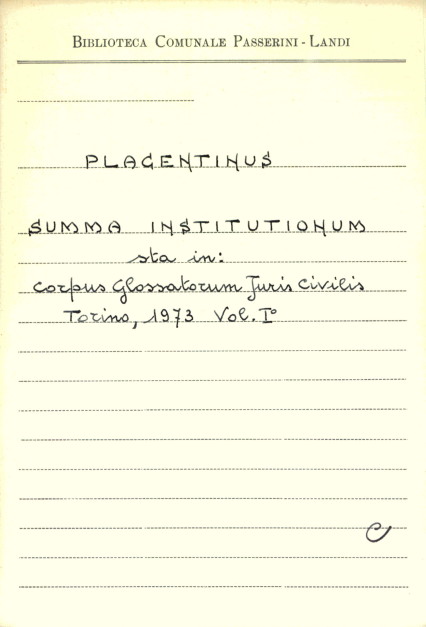 BIBLIOTECA COMUNALE PASSERINI - LANDI
PLACENTINUS
SUMMA INSTITUTIONUM
sta in:
Corpus Glossatorum Juris Civilis
Torino, 1973 Vol. I°
C